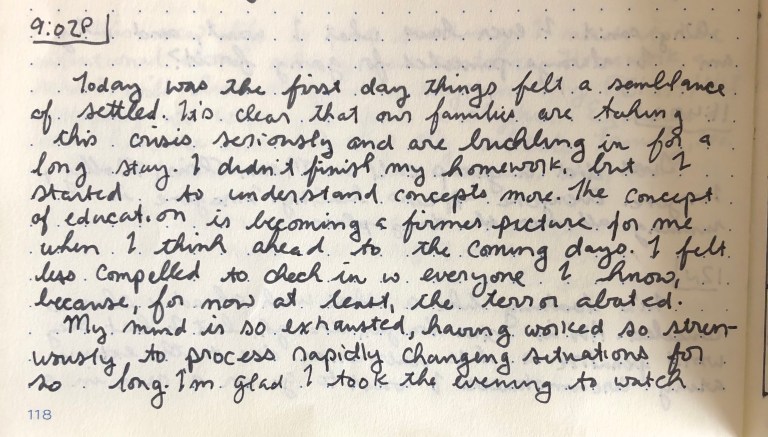 9:02P
Today was the first day things felt a semblance
of settled. It's clear that our families are taking
this crisis seriously and are buckling in for a
long stay. I didn't finish my homework, but I
started to understand concepts more. The concept
of education is becoming a firmer picture for me
when I think ahead to the coming days. I felt
less compelled to check in w everyone I know,
because, for now at least, the terror abated.
My mind is so exhausted, having worked so stren-
uously to process rapidly changing situations for
so long. I'm glad I took the evening to watch
118